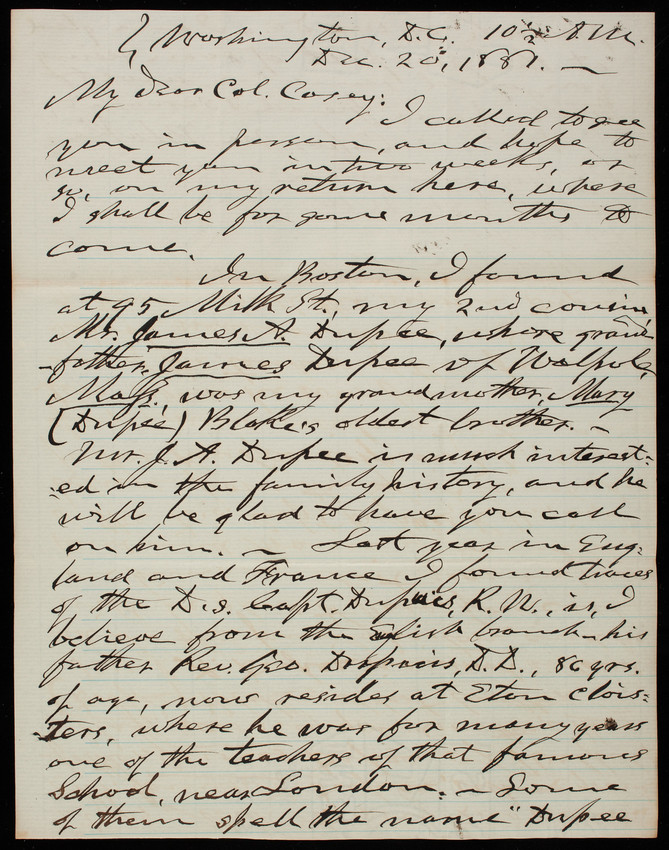 Washington, D.C. 10 1/2 A.M.
Dec. 20, 1881. —
My dear Col. Casey:
I called to see
you in person, and hope to
meet you in two weeks, or
so, on my return here, where
I shall be for some months to
come.
In Boston, I found
at 95 Milk St., my 2nd cousin,
Mr. James A. Dupee, whose grand-
-father, James Dupee of Walpole,
Mass., was my grandmother, Mary
(Dupee) Blake's oldest brother. —
Mr. J. A. Dupee is much interest-
-ed in the family history, and he
will be glad to have you call
on him. — Last year in Eng-
land and France I found traces
of the D.s. Capt. Dupuis, R. N., is, I
believe from the English branch — his
father Rev. Geo. Dupuis, D.D., 86 yrs.
of age, now resides at Eton Clois-
-ters, where he was for many years
one of the teachers of that famous
School, near London. — Some
of them spell the name "Dupee